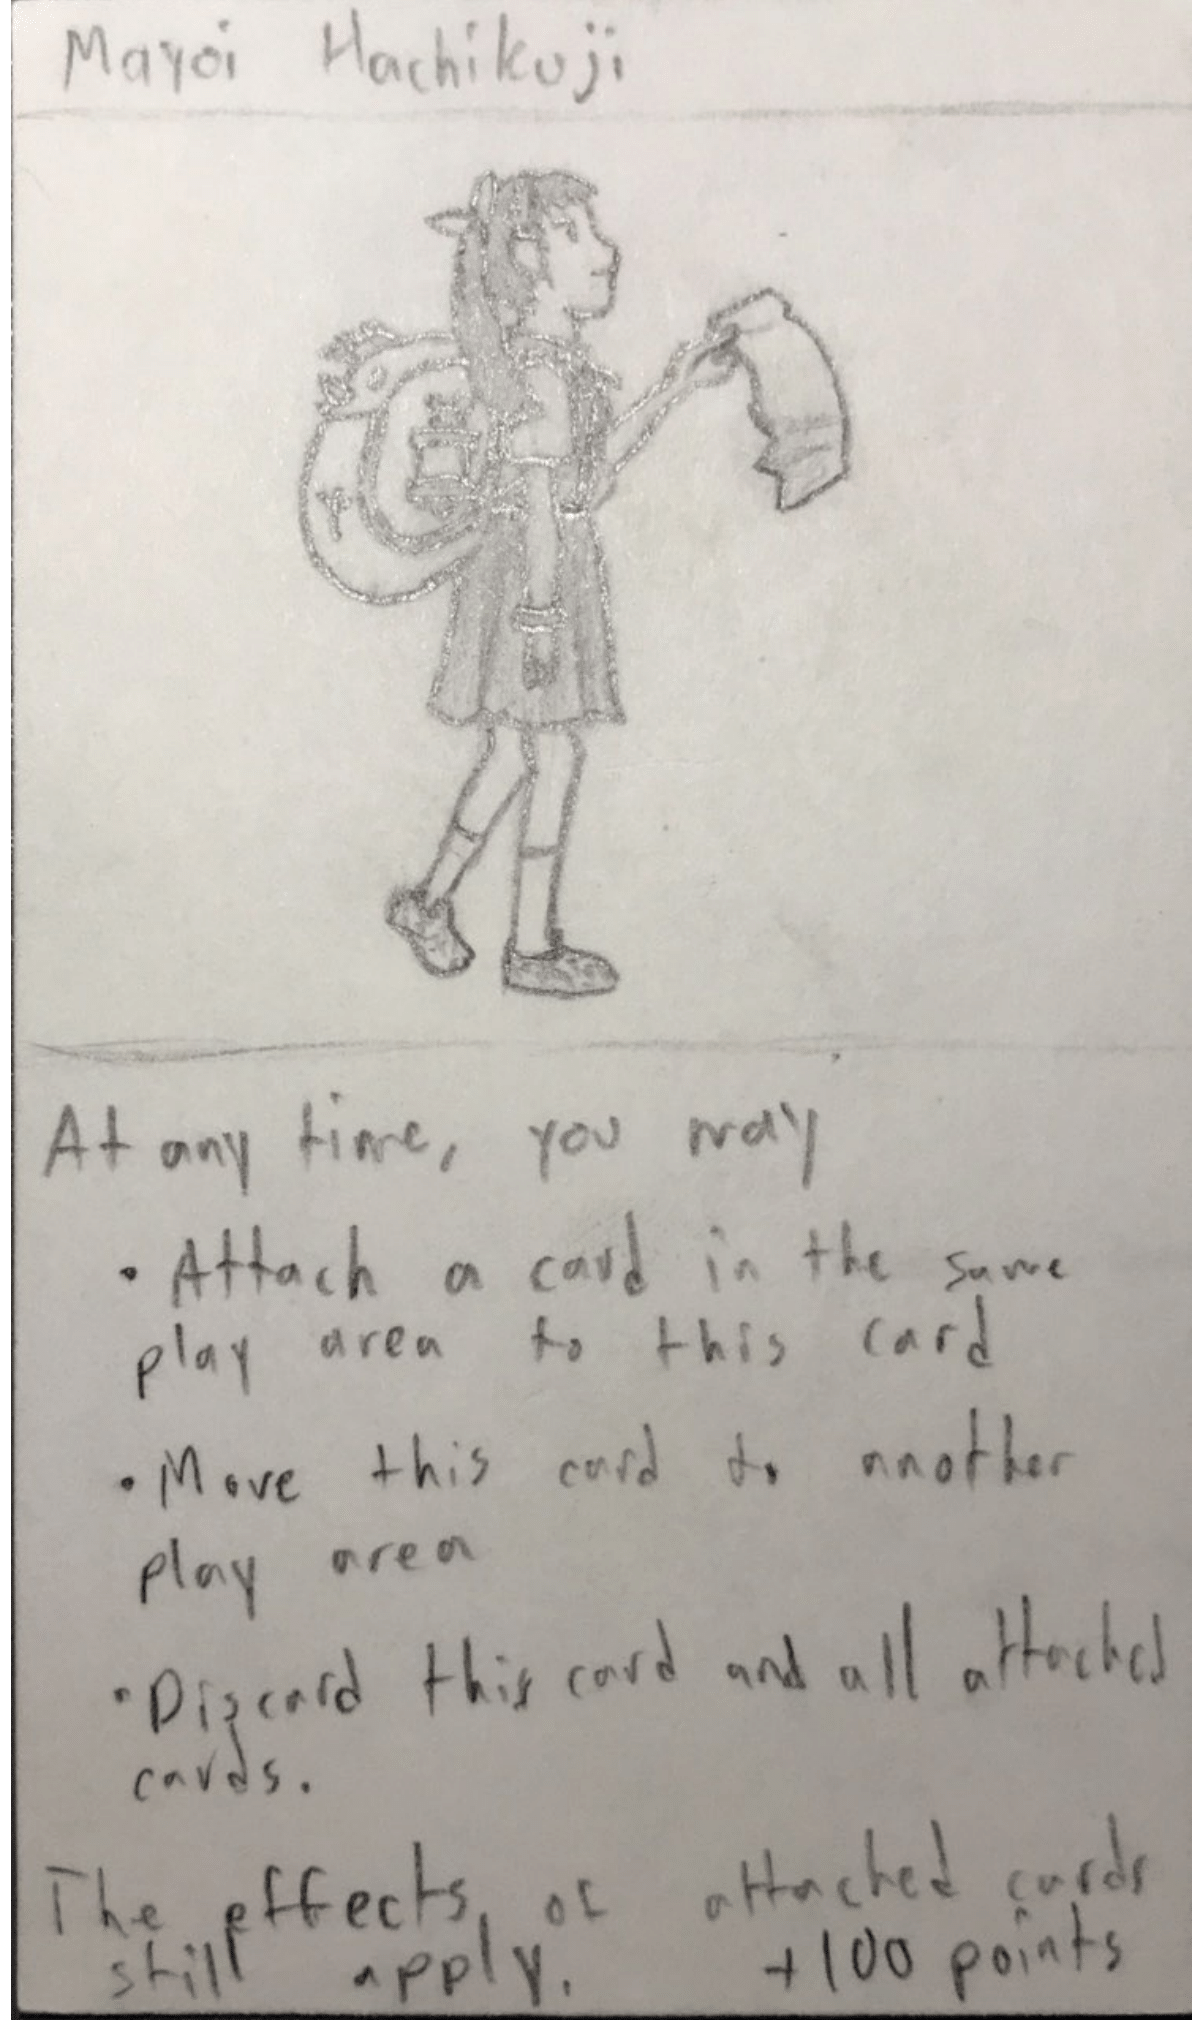 Mayoi Hachikuji
At any time, you may
• Attach a card in the same
play area to this card
• Move this card to another
play area
• Discard this card and all attached
cards.
The effects of attached cards
still apply. +100 points